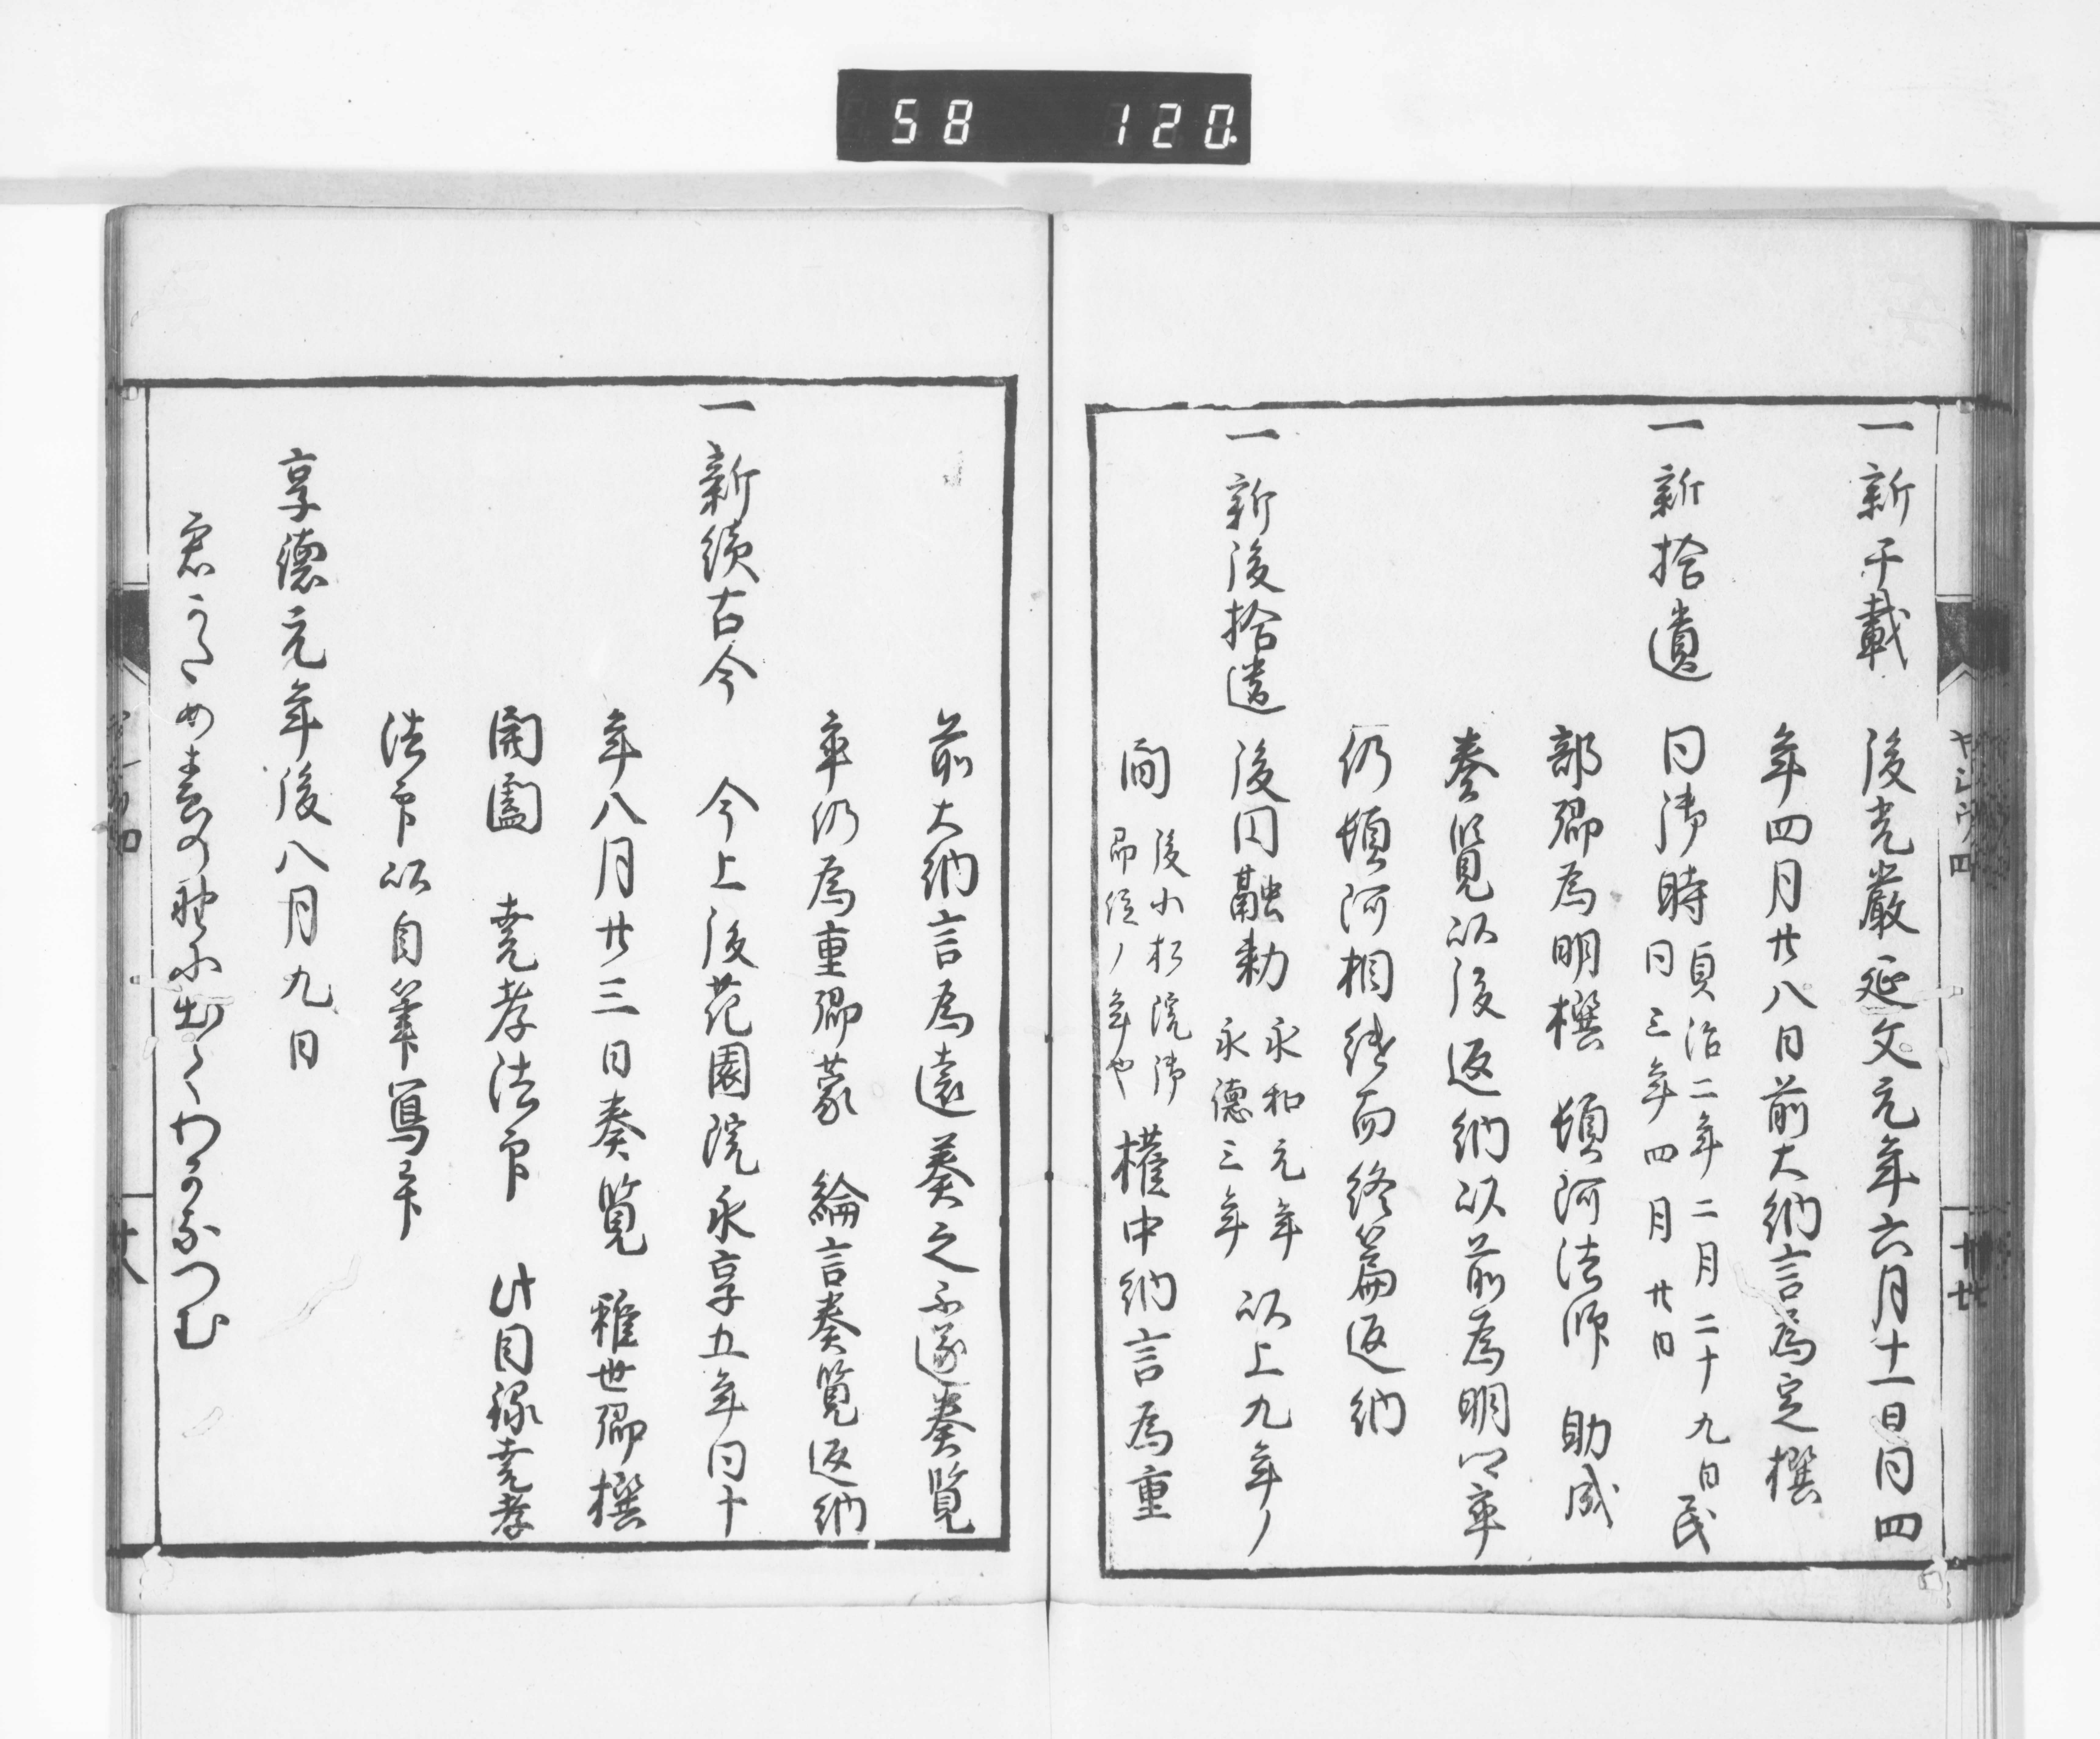 58 120
一新千載 後光厳延文元年六月十一日同四
年四月廿八日前大納言為定撰
一新拾遺 同御時貞治二年二月二十九日民
同三年四月廿日
部卿為明撰 頓阿法師 助成
奏覧以後返納以前為明卿卒
仍頓阿相続而終篇返納
一新後拾遺 後円融勅 永和元年 以上九年ノ
永徳三年
間 後小松院御
即位ノ年也 権中納言為重
前大納言為遠奏之不遂奏覧
卒仍為重卿蒙 綸言奏覧返納
一新続古今 今上後花園院永享五年同十
年八月廿三日奏覧 雅世卿撰
開闔 尭孝法印 此目録尭孝
法印以自筆写畢
享徳元年後八月九日
君かため春の野に出てわかなつむ